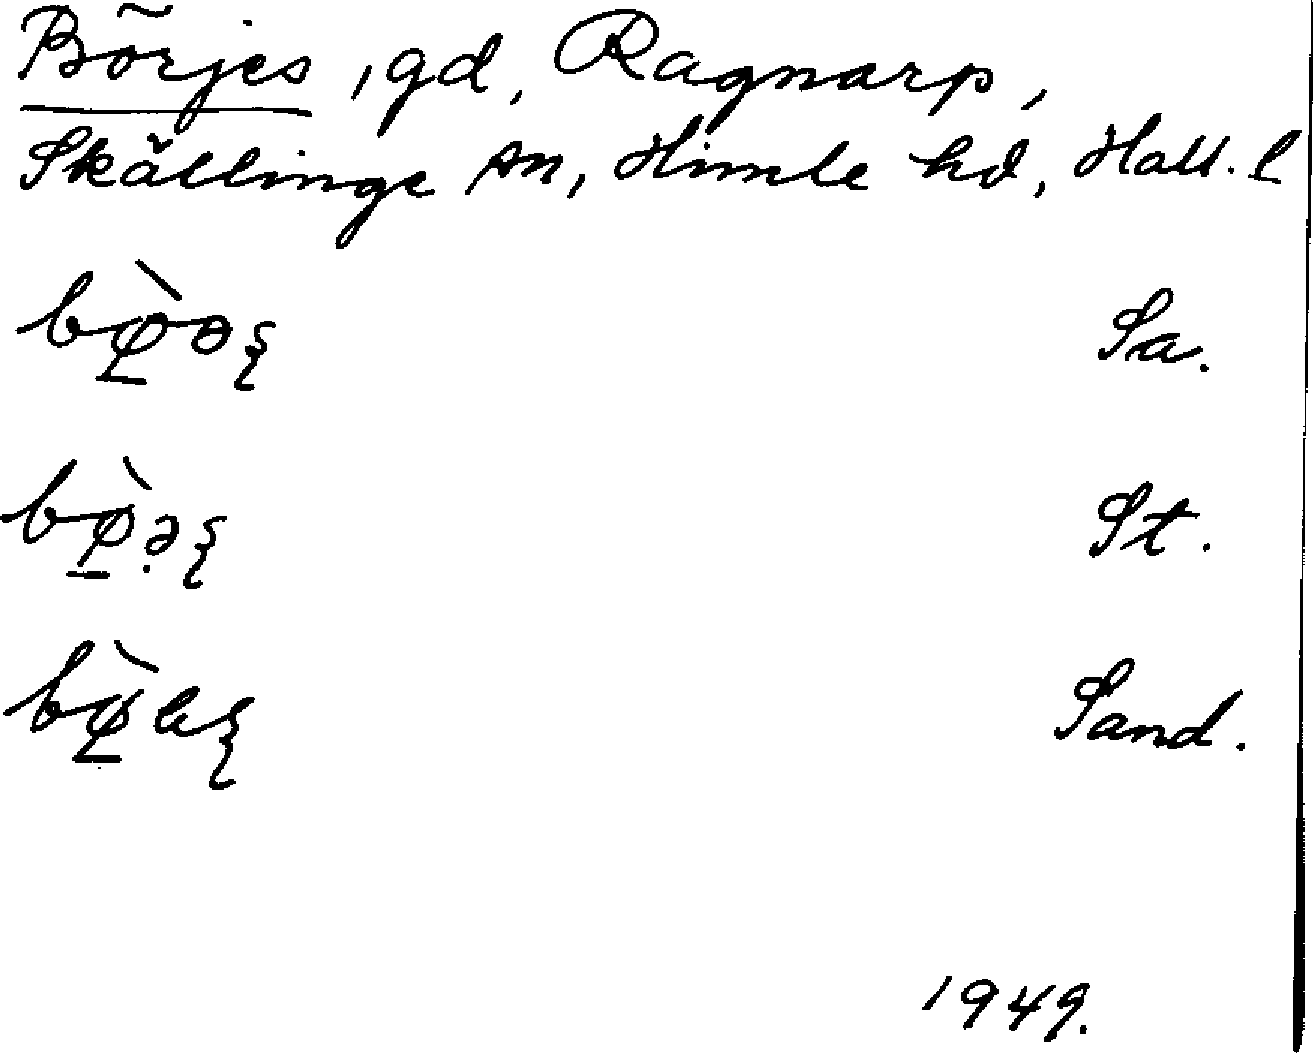 Börjes, gd, Ragnarp,
Skällinge sn, Himle hd, Hall. l
Sa.
St.
Sand.
1949.